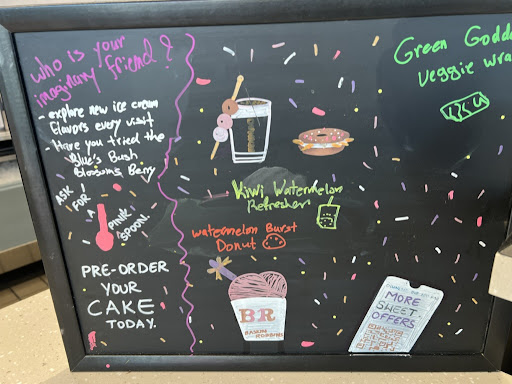 who is your
imaginary friend?
- explore new ice cream
Flavors every visit
Have you tried the
Blue's Bush
blossoms Berry
ASK
FOR
A
PINK
SPOON.
PRE-ORDER
YOUR
CAKE
TODAY.
Kiwi Watermelon
Refresher
Watermelon Burst
Donut
BR
BASKIN
ROBBINS
Green Godd
Veggie wra
MORE
SWEET
OFFERS